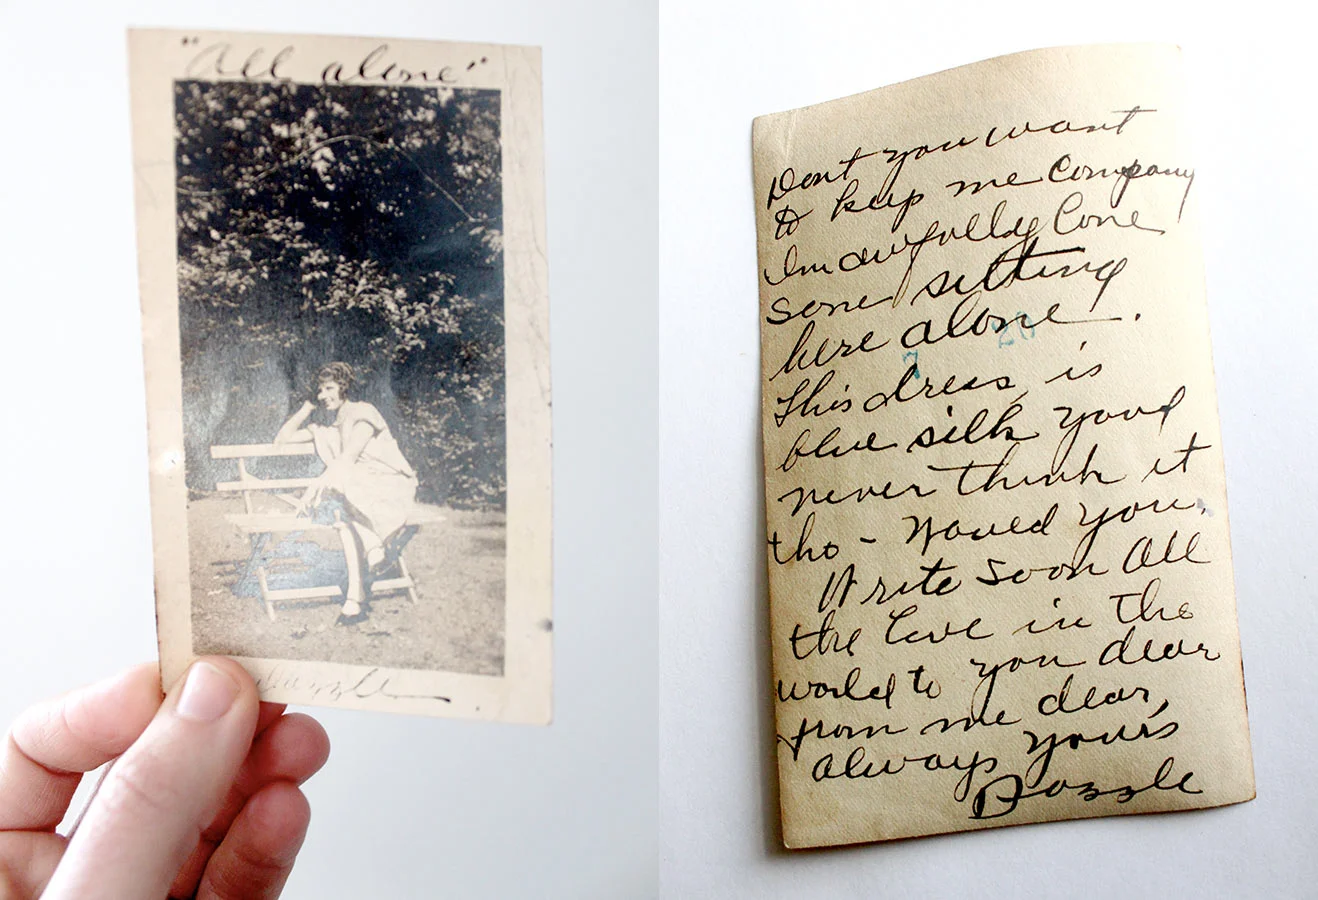 "All alone"
Dazzle
Dont you want
to keep me Company
Im awfully Lone
some sitting
here alone.
7 20
This dress is
blue silk youd
never think it
tho - Would you.
Write soon All
the love in the
world to you dear
from me dear,
always yours
Dazzle